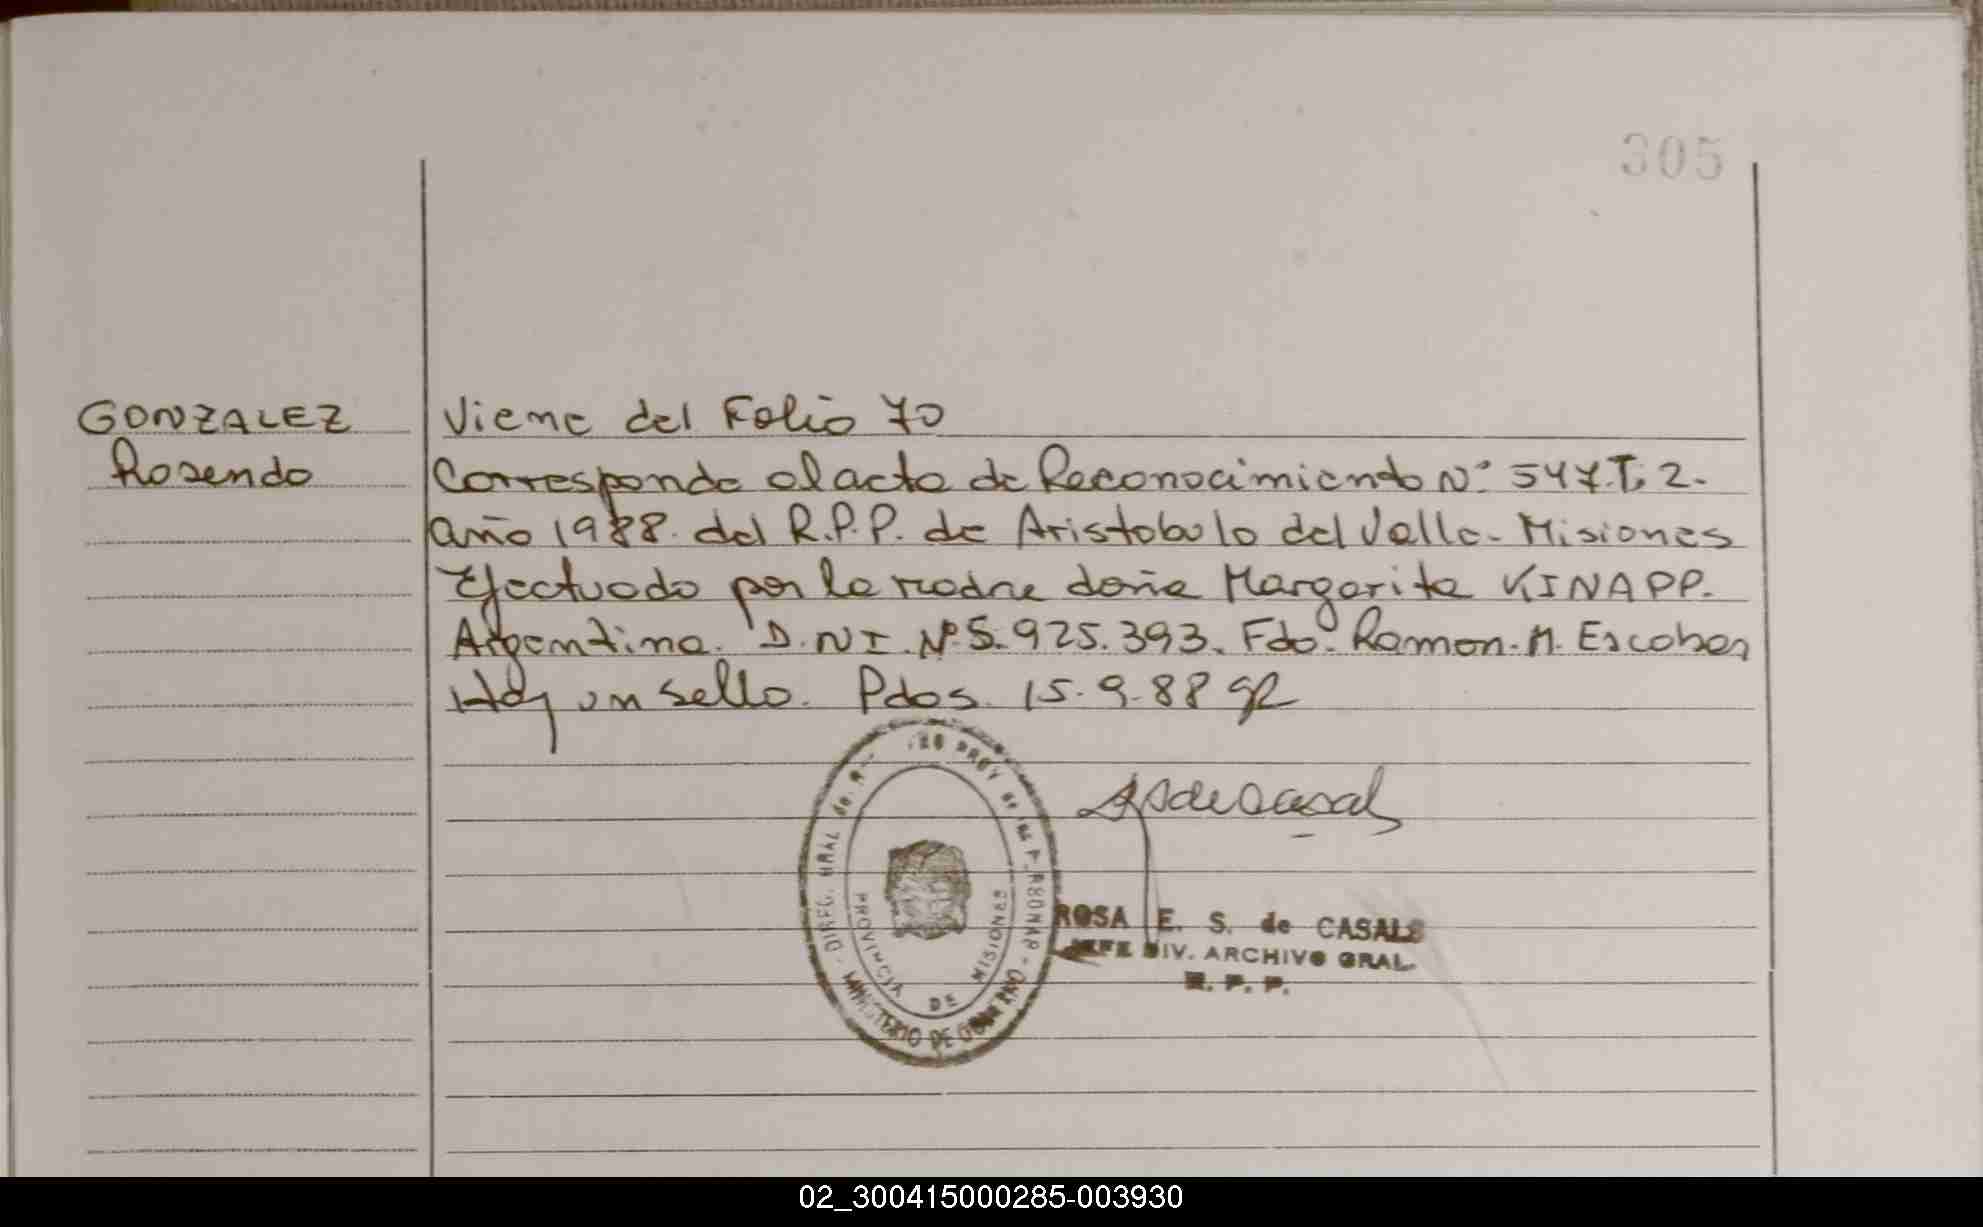 305
GONZALEZ
Rosendo
Viene del Folio 70
Corresponde al acta de Reconocimiento Nº 547.T: 2.
año 1988. del R.P.P. de Aristobulo del Valle - Misiones
Efectuado por la madre doña Margarita KINAPP.
Argentina. D.N.I. Nº 5.925.393. Fdo: Ramon. M. Escobar
Hay un sello. Pdos. 15.9.88
PROV de las
DIREC. GRAL de
PROVINCIA DE MISIONES
MINISTERIO DE GOBIERNO
ROSA E. S. de CASALS
JEFE DIV. ARCHIVO GRAL.
R. P. P.
02_300415000285-003930